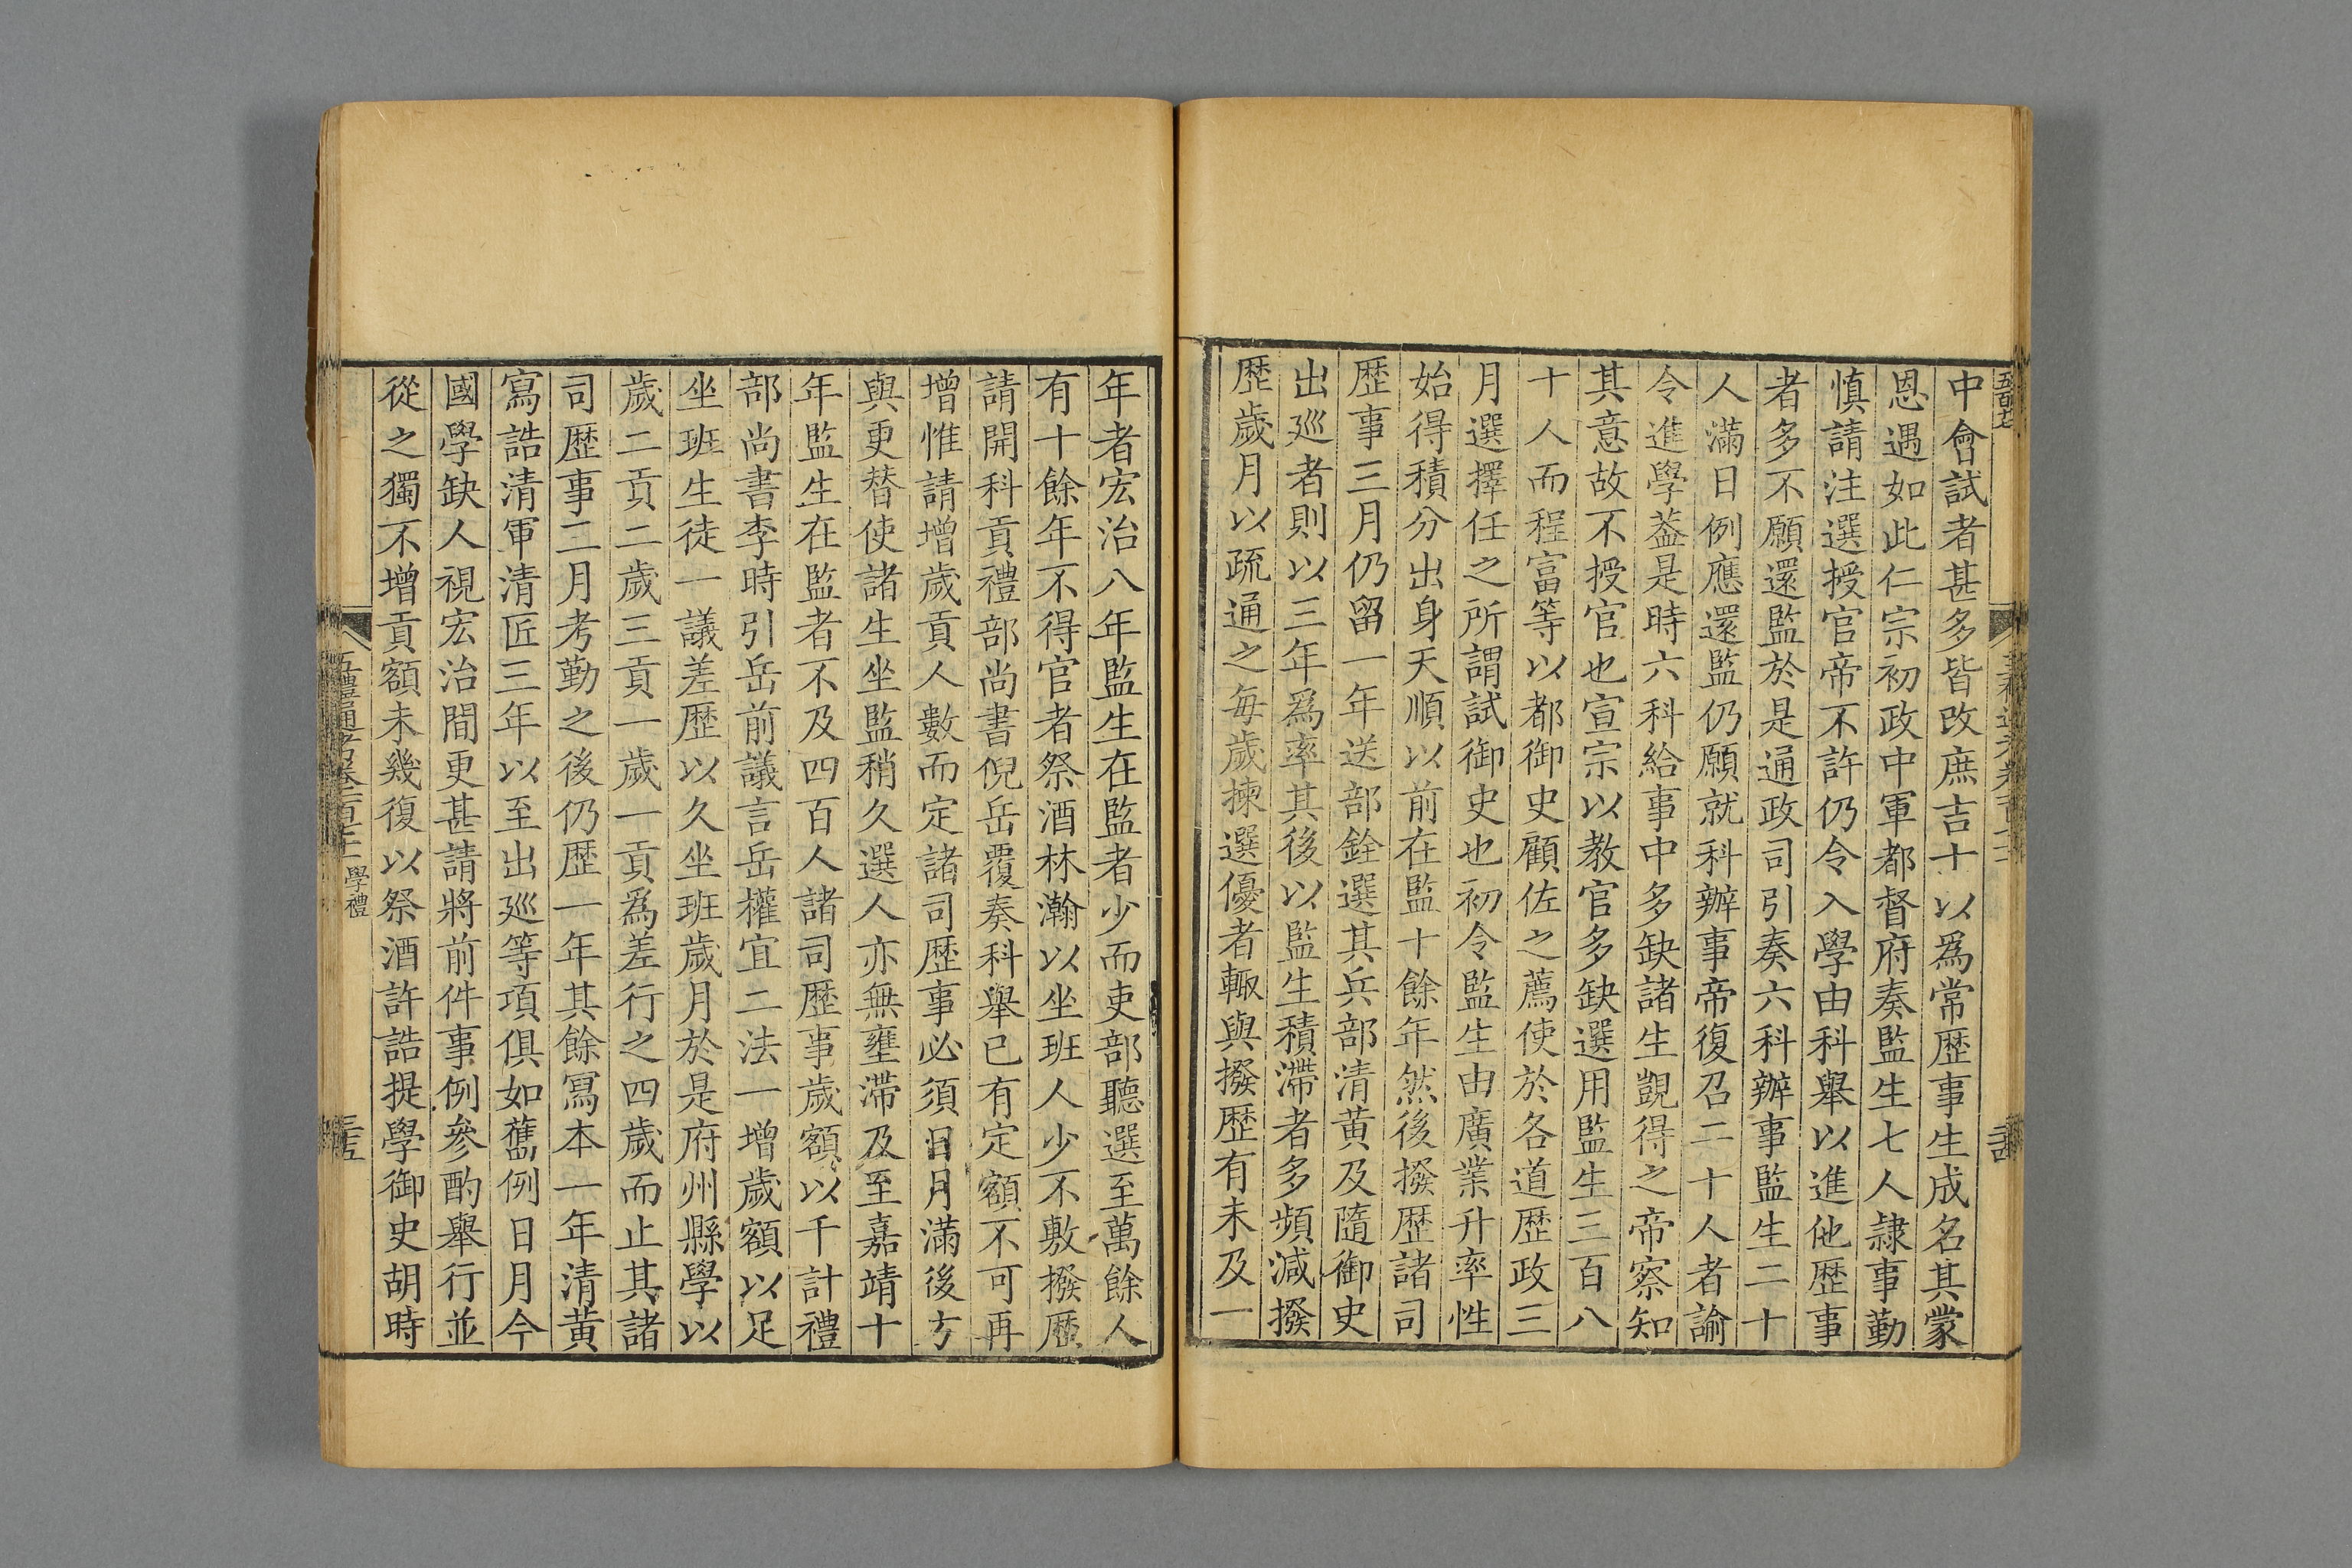 中會試者甚多皆改庶吉士以爲常歷事生成名其蒙
恩遇如此仁宗初政中軍都督府奏監生七人隷事勤
慎請注選授官帝不許仍令入學由科舉以進他歷事
者多不願還監於是通政司引奏六科辦事監生二十
人滿日例應還監仍願就科辦事帝復召二十人者諭
令進學葢是時六科給事中多缺諸生覬得之帝察知
其意故不授官也宣宗以教官多缺選用監生三百八
十人而程富等以都御史顧佐之薦使於各道歷政三
月選擇任之所謂試御史也初令監生由廣業升率性
始得積分出身天順以前在監十餘年然後撥歷諸司
歷事三月仍留一年送部銓選其兵部清黄及隨御史
出巡者則以三年爲率其後以監生積滯者多頻減撥
歷歲月以疏通之每歲揀選優者輙與撥歷有未及一
年者宏治八年監生在監者少而吏部聽選至萬餘人
有十餘年不得官者祭酒林瀚以坐班人少不敷撥歷
請開科貢禮部尚書倪岳覆奏科舉已有定額不可再
增惟請增歲貢人數而定諸司歷事必須日月滿後方
與更替使諸生坐監稍久選人亦無壅滯及至嘉靖十
年監生在監者不及四百人諸司歷事歲額以千計禮
部尚書李時引岳前議言岳權宜二法一增歲額以足
坐班生徒一議差歷以久坐班歲月於是府州縣學以
歲二貢二歲三貢一歲一貢爲差行之四歲而止其諸
司歷事三月考勤之後仍歷一年其餘寫本一年清黄
寫誥清軍清匠三年以至出巡等項俱如舊例日月今
國學缺人視宏治間更甚請將前件事例參酌舉行並
從之獨不增貢額未幾復以祭酒許誥提學御史胡時
五禮通考卷一百七十一 學禮